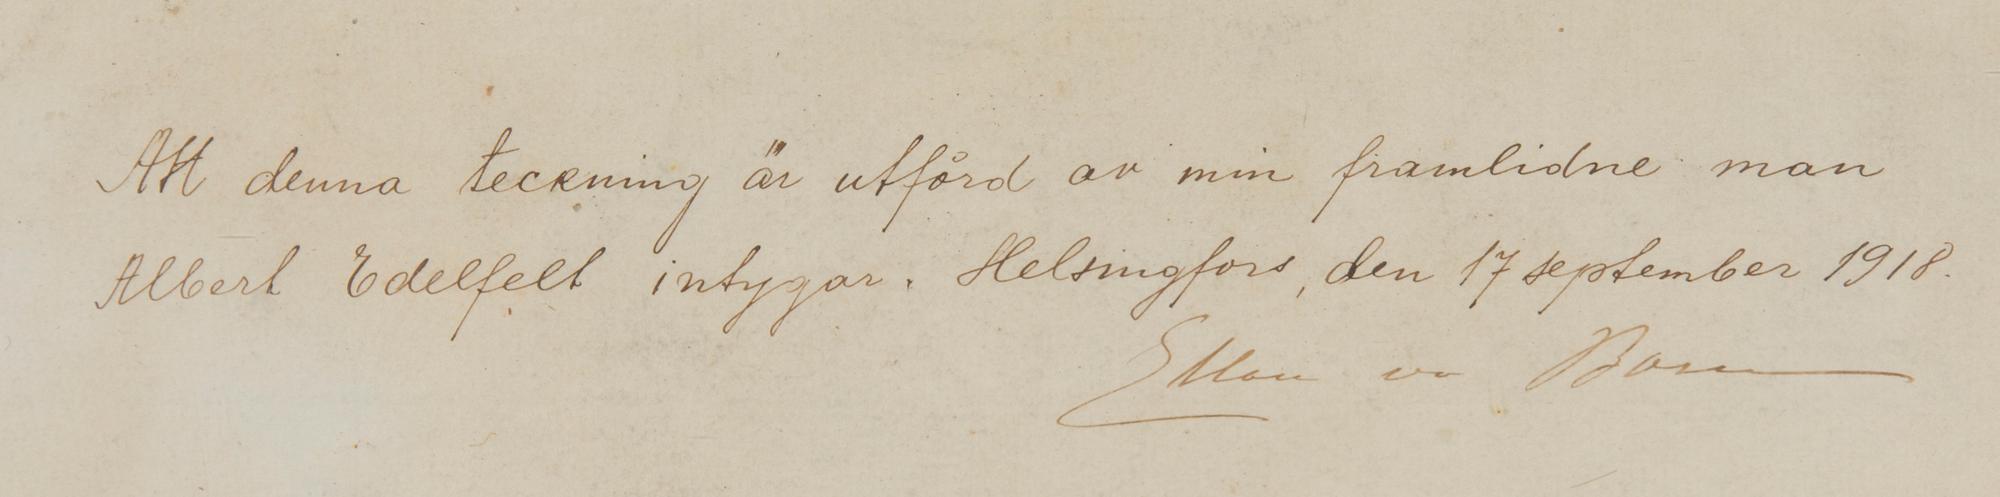 Att denna teckning är utförd av min framlidne man
Albert Edelfelt intygar. Helsingfors, den 17 september 1918.
Ellan v. Born